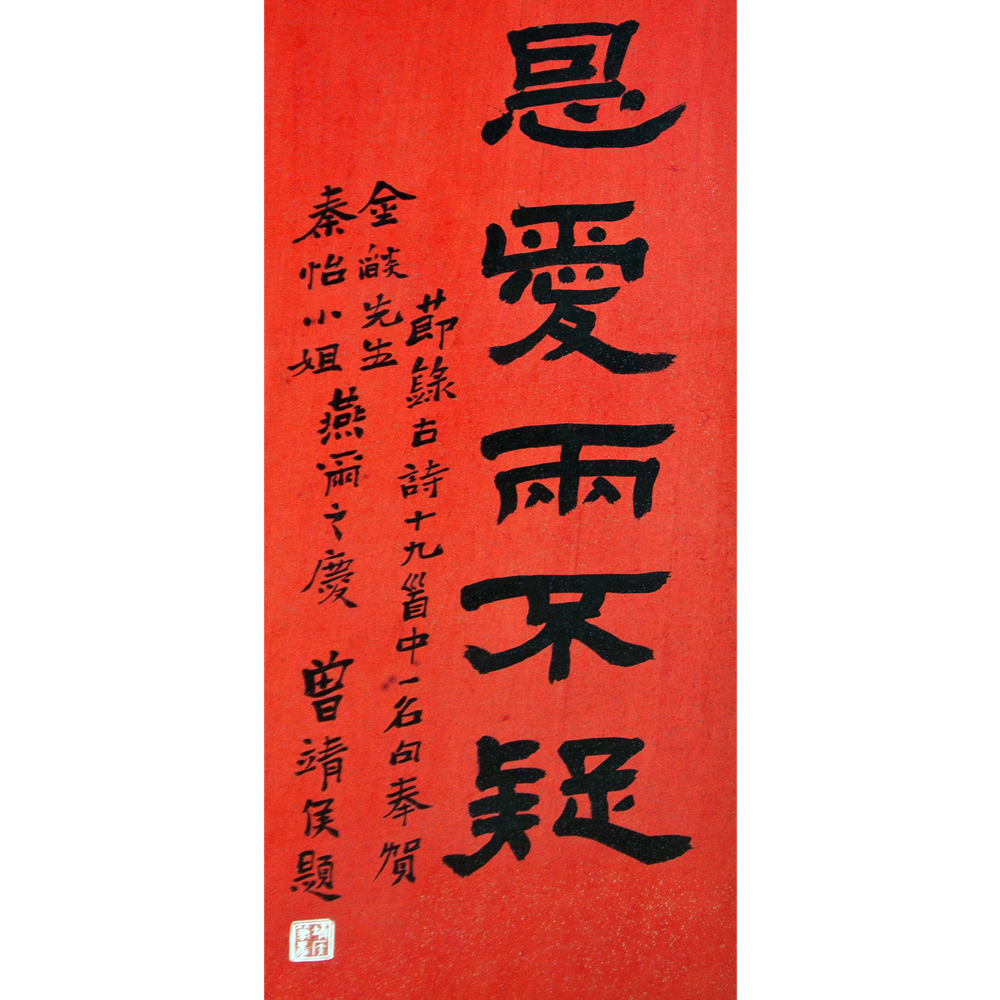 恩愛兩不疑
節錄古詩十九首中一名句奉賀
金燄先生
秦怡小姐
燕爾之慶
曾靖侯題